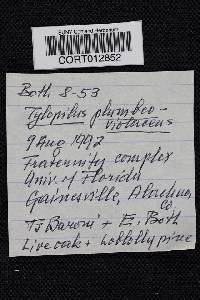 SUNY Cortland Herbarium
CORT012852
Both 8-53
Tylopilus plumbeo-
violaceus
9 Aug 1992
Fraternity complex
Univ. of Florida
Gainesville, Alachua
Co.
TJ Baroni + E. Both
Live oak + loblolly pine